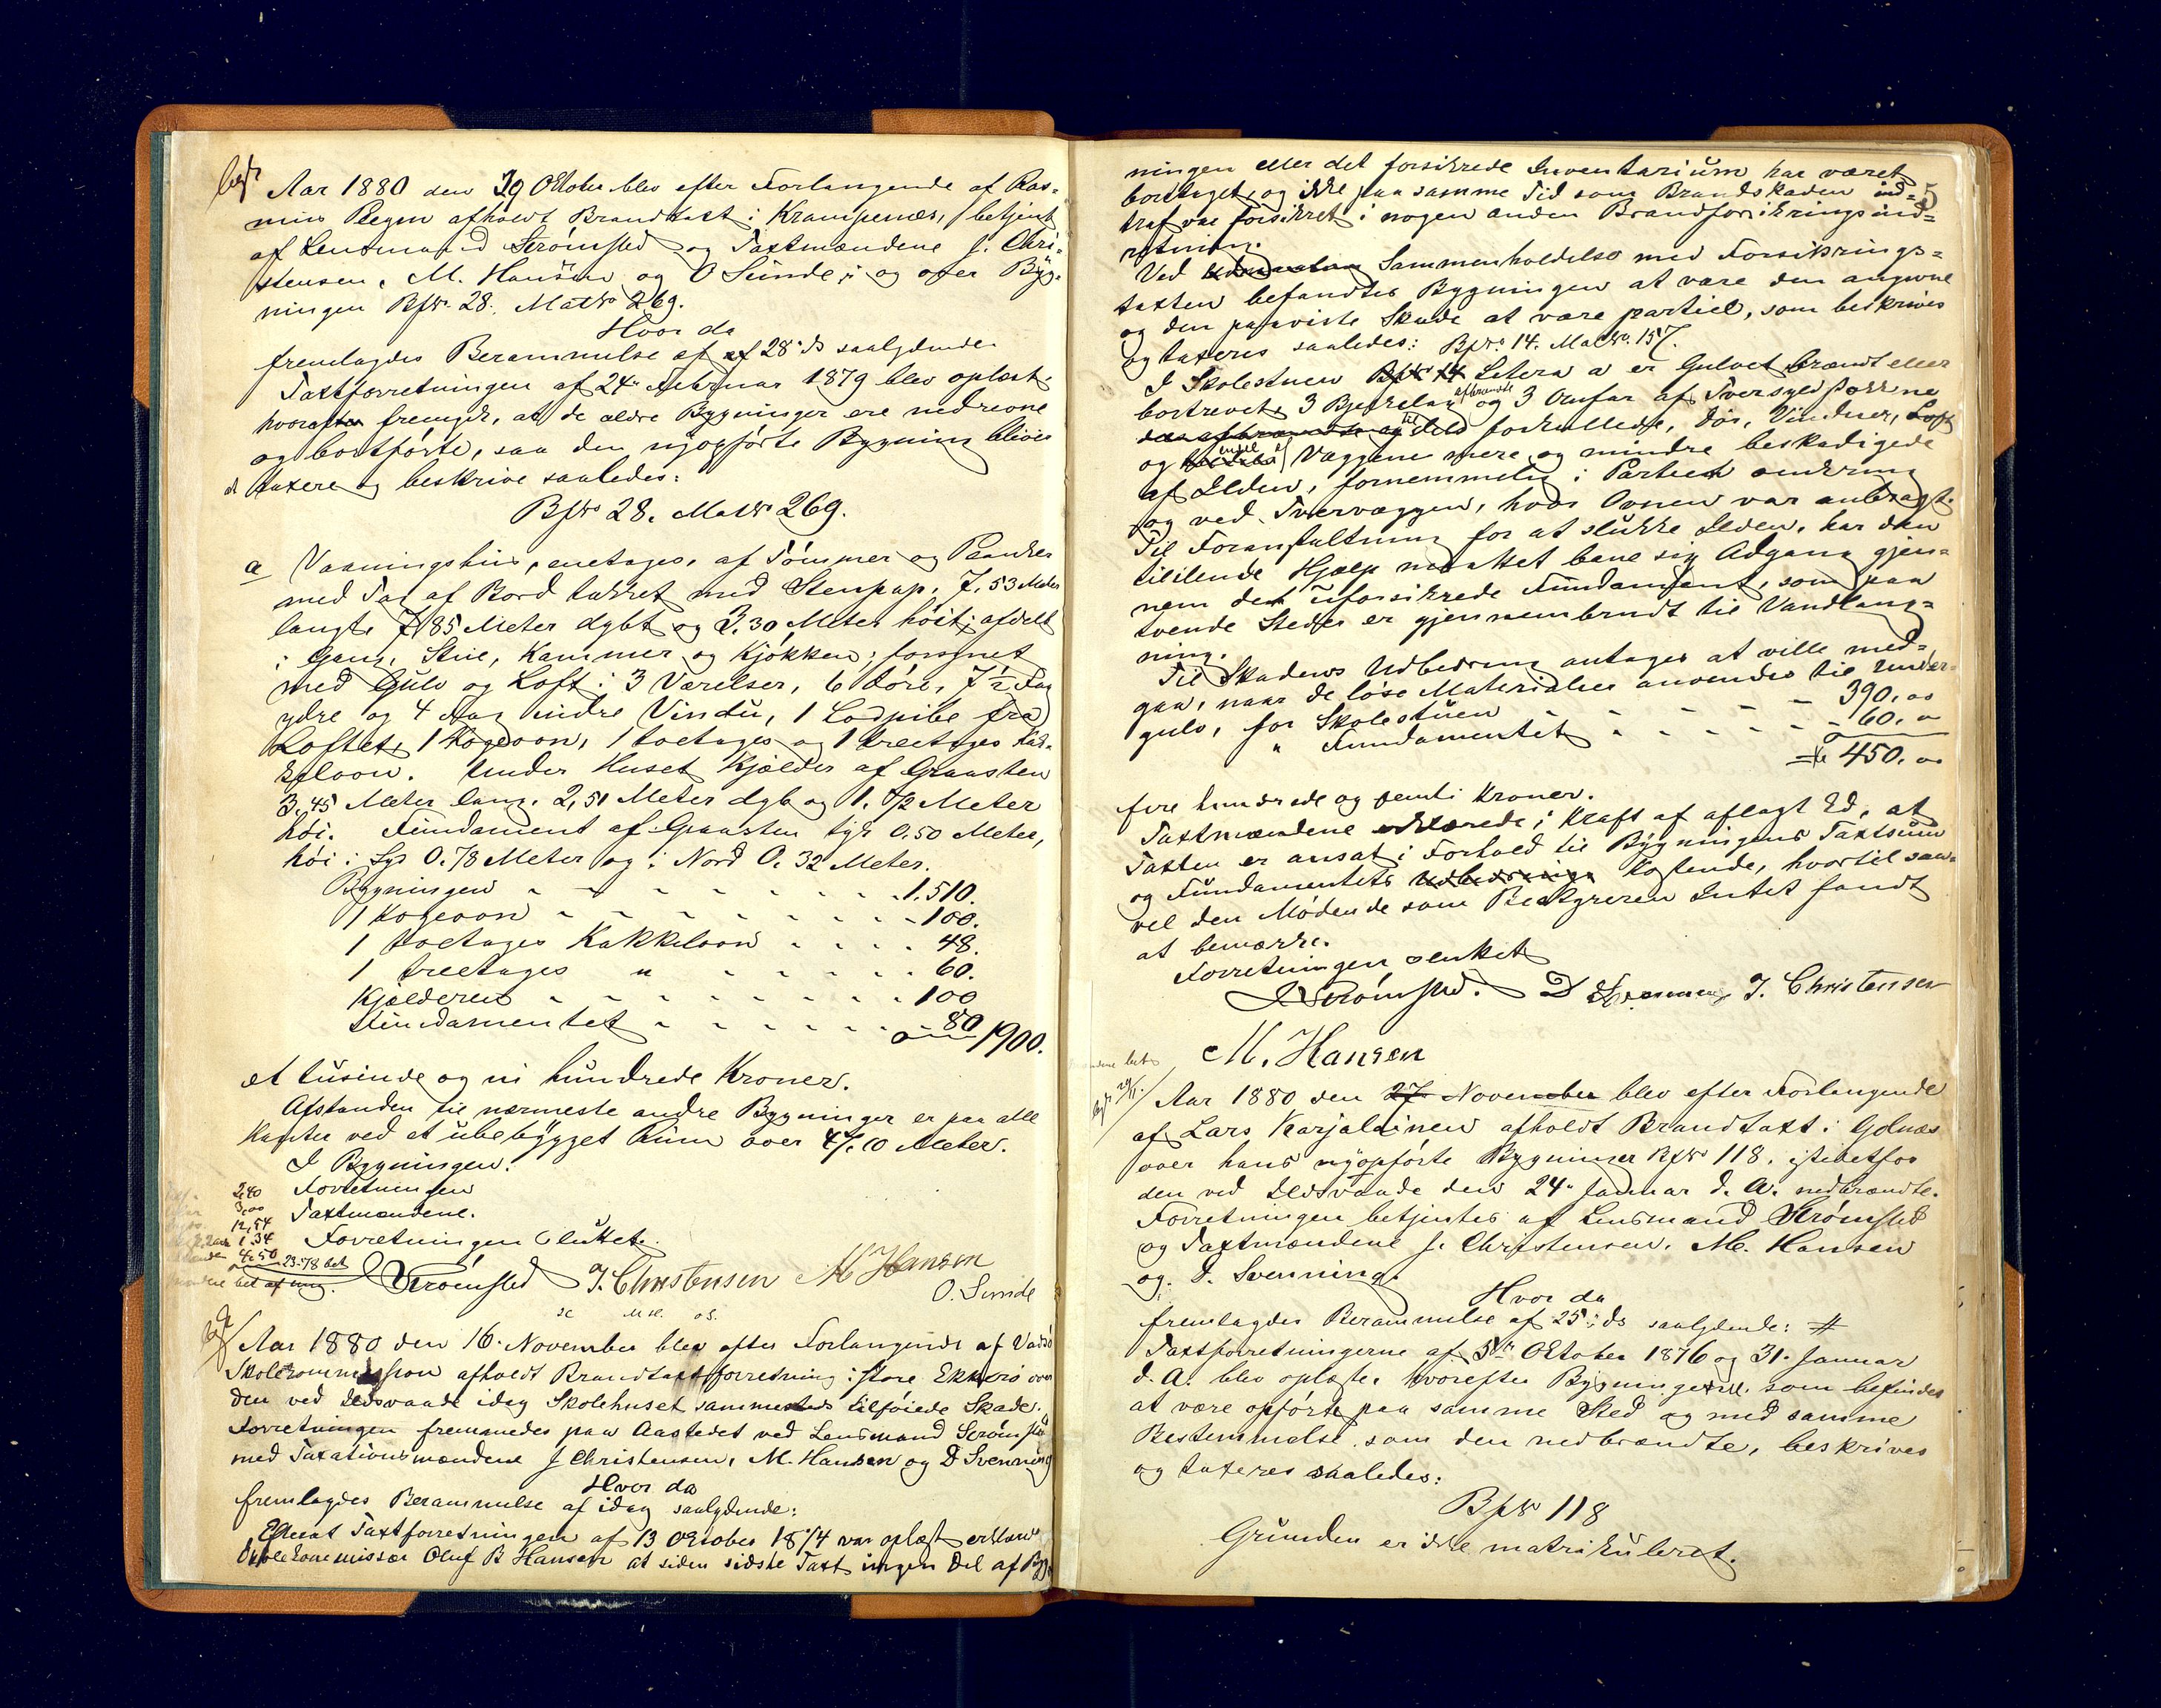 Aar 1880 den 29 Oktober blev efter Forlangende af Ras-
mus afholdt Brandtaxt i Krampenæs, betjent
af Lensmand Strømsted og Taxtmændene J. Chri-
stensen, M. Hansen og O Sunde; og over Byg-
ningen BpNo 28. MatNo 269.
Hvor da
fremlagdes Berammelse af 28 ds saalydende
Taxtforretningen af 24 Februar 1879 blev oplæst
hvorefter fremgik, at de ældre Bygninger ere nedrevne
og bortførte, saa den nyopførte Bygning bliver
at taxere og beskrive saaledes:
BpNo 28. MatNo 269.
a Vaaningshus, enetages, af Tømmer og Planker
med Tag af Bord tækket med Stenpap, 7,53 Meter
langt, 7,85 Meter dybt og 3.30 Meter høit; afdelt
i Gang, Stue, Kammer og Kjøkken; forsynet
med Gulv og Loft i 3 Værelser, 6 Døre, 7½ Fag
ydre og 4 Fag indre Vindu, 1 Lodpibe fra
Loftet, 1 Kogeovn, 1 toetages og 1 treetages Kak-
kelovn. Under Huset Kjælder af Graasten
3,45 Meter lang, 2,51 Meter dyb og 1. 72 Meter
høi. Fundament af Graasten tyk 0.50 Meter,
høi i Syd 0.78 Meter og i Nord 0.32 Meter.
Bygningen - - - - - - 1,510.
1 Kogeovn - - - - - - 100.
1 toetages Kakkelovn - - - - 48.
1 treetages " - - - - - 60.
Kjælderen - - - - - - 100
Fundamentet - - - - - - 80 1900.
et tusinde og ni hundrede Kroner.
Afstanden til nærmeste andre Bygninger er paa alle
Kanter ved et ubebygget Rum over 47,10 Meter.
I Bygningen.
2,40 Forretningen
3,00 Taxtmændene.
12,54
1.34 Forretningen sluttet.
4.50 23.78 bet
Strømsted J. Christensen M Hansen
O. Sunde
Aar 1880 den 16. November blev efter Forlangende af Vadsø
Skolekommission afholdt Brandtaxtforretning i store Ekkerø over
den ved Ildsvaade idag Skolehuset sammesteds tilføiede Skade.
Forretningen fremmedes paa Aastedet ved Lensmand Strømsted
med Taxationsmændene J Christensen, M. Hansen og D Svenning
Hvor da
fremlagdes Berammelse af idag saalydende:
Efterat Taxtforretningen af 13 Oktober 1874 var oplæst erklærte
Skolekommissær Oluf B Hansen at siden sidste Taxt ingen Del af Byg-
ningen eller det forsikrede Inventarium har været
borttaget, og ikke paa samme Tid som Brandskaden ind-
traf var forsikret i nogen anden Brandforsikringsind-
retning.
Ved Sammenholdelse med Forsikrings-
taxten befandtes Bygningen at være den angivne
og den paaviste Skade at være partiel, som beskrives
og taxeres saaledes: BpNo 14. MatNo 157.
I Skolestuen BpNo 14 Litera a er Gulvet brændt eller
bortrevet, 3 Bjelkelag afbrændte og 3 Omfar af Tversyldstokkene
til forkullede, Dør, Vinduer, Loft
og Væggene mere og mindre beskadigede
af Ilden, fornemmelig i Partiet omkring
og ved Tvervæggen, hvor Ovnen var anbragt.
Til Foranstaltning for at slukke Ilden, har den
tililende Hjælp maattet bane sig Adgang gjen-
nem det uforsikrede Fundament, som paa
tvende Steder er gjennembrudt til Vandlang-
ning.
Til Skadens Udbedring antages at ville med-
gaa, naar de løse Materialier anvendes til Under-
gulv, for Skolestuen - - - - 390.00
" Fundamentet - - - - - 60.00
Kr 450.00
fire hundrede og femti Kroner.
Taxtmændene erklærede i Kraft af aflagt Ed, at
Taxten er ansat i Forhold til Bygningens Taxtsum
og Fundamentets Udbedrings Kostende, hvortil saa-
vel den Mødende som Bestyreren Intet fandt
at bemærke.
Forretningen sluttet
Strømsted. D Svenning J. Christensen
M. Hansen
Aar 1880 den 27 November blev efter Forlangende
af Lars Karjalainen afholdt Brandtaxt i Golnæs
over hans nyopførte Bygninger BpNo 118, istedetfor
den ved Ildsvaade den 24 Januar d. A. nedbrændte.
Forretningen betjentes af Lensmand Strømsted
og Taxtmændene J. Christensen, M. Hansen
og D. Svenning.
Hvor da
fremlagdes Berammelse af 25 ds saalydende: #
Taxtforretningerne af 5te Oktober 1876 og 31 Januar
d. A. blev oplæste, hvorefter Bygningerne som befindes
at være opførte paa samme Sted og med samme
Bestemmelse som den nedbrændte, beskrives
og taxeres saaledes:
BpNo 118
Grunden er ikke matrikuleret.